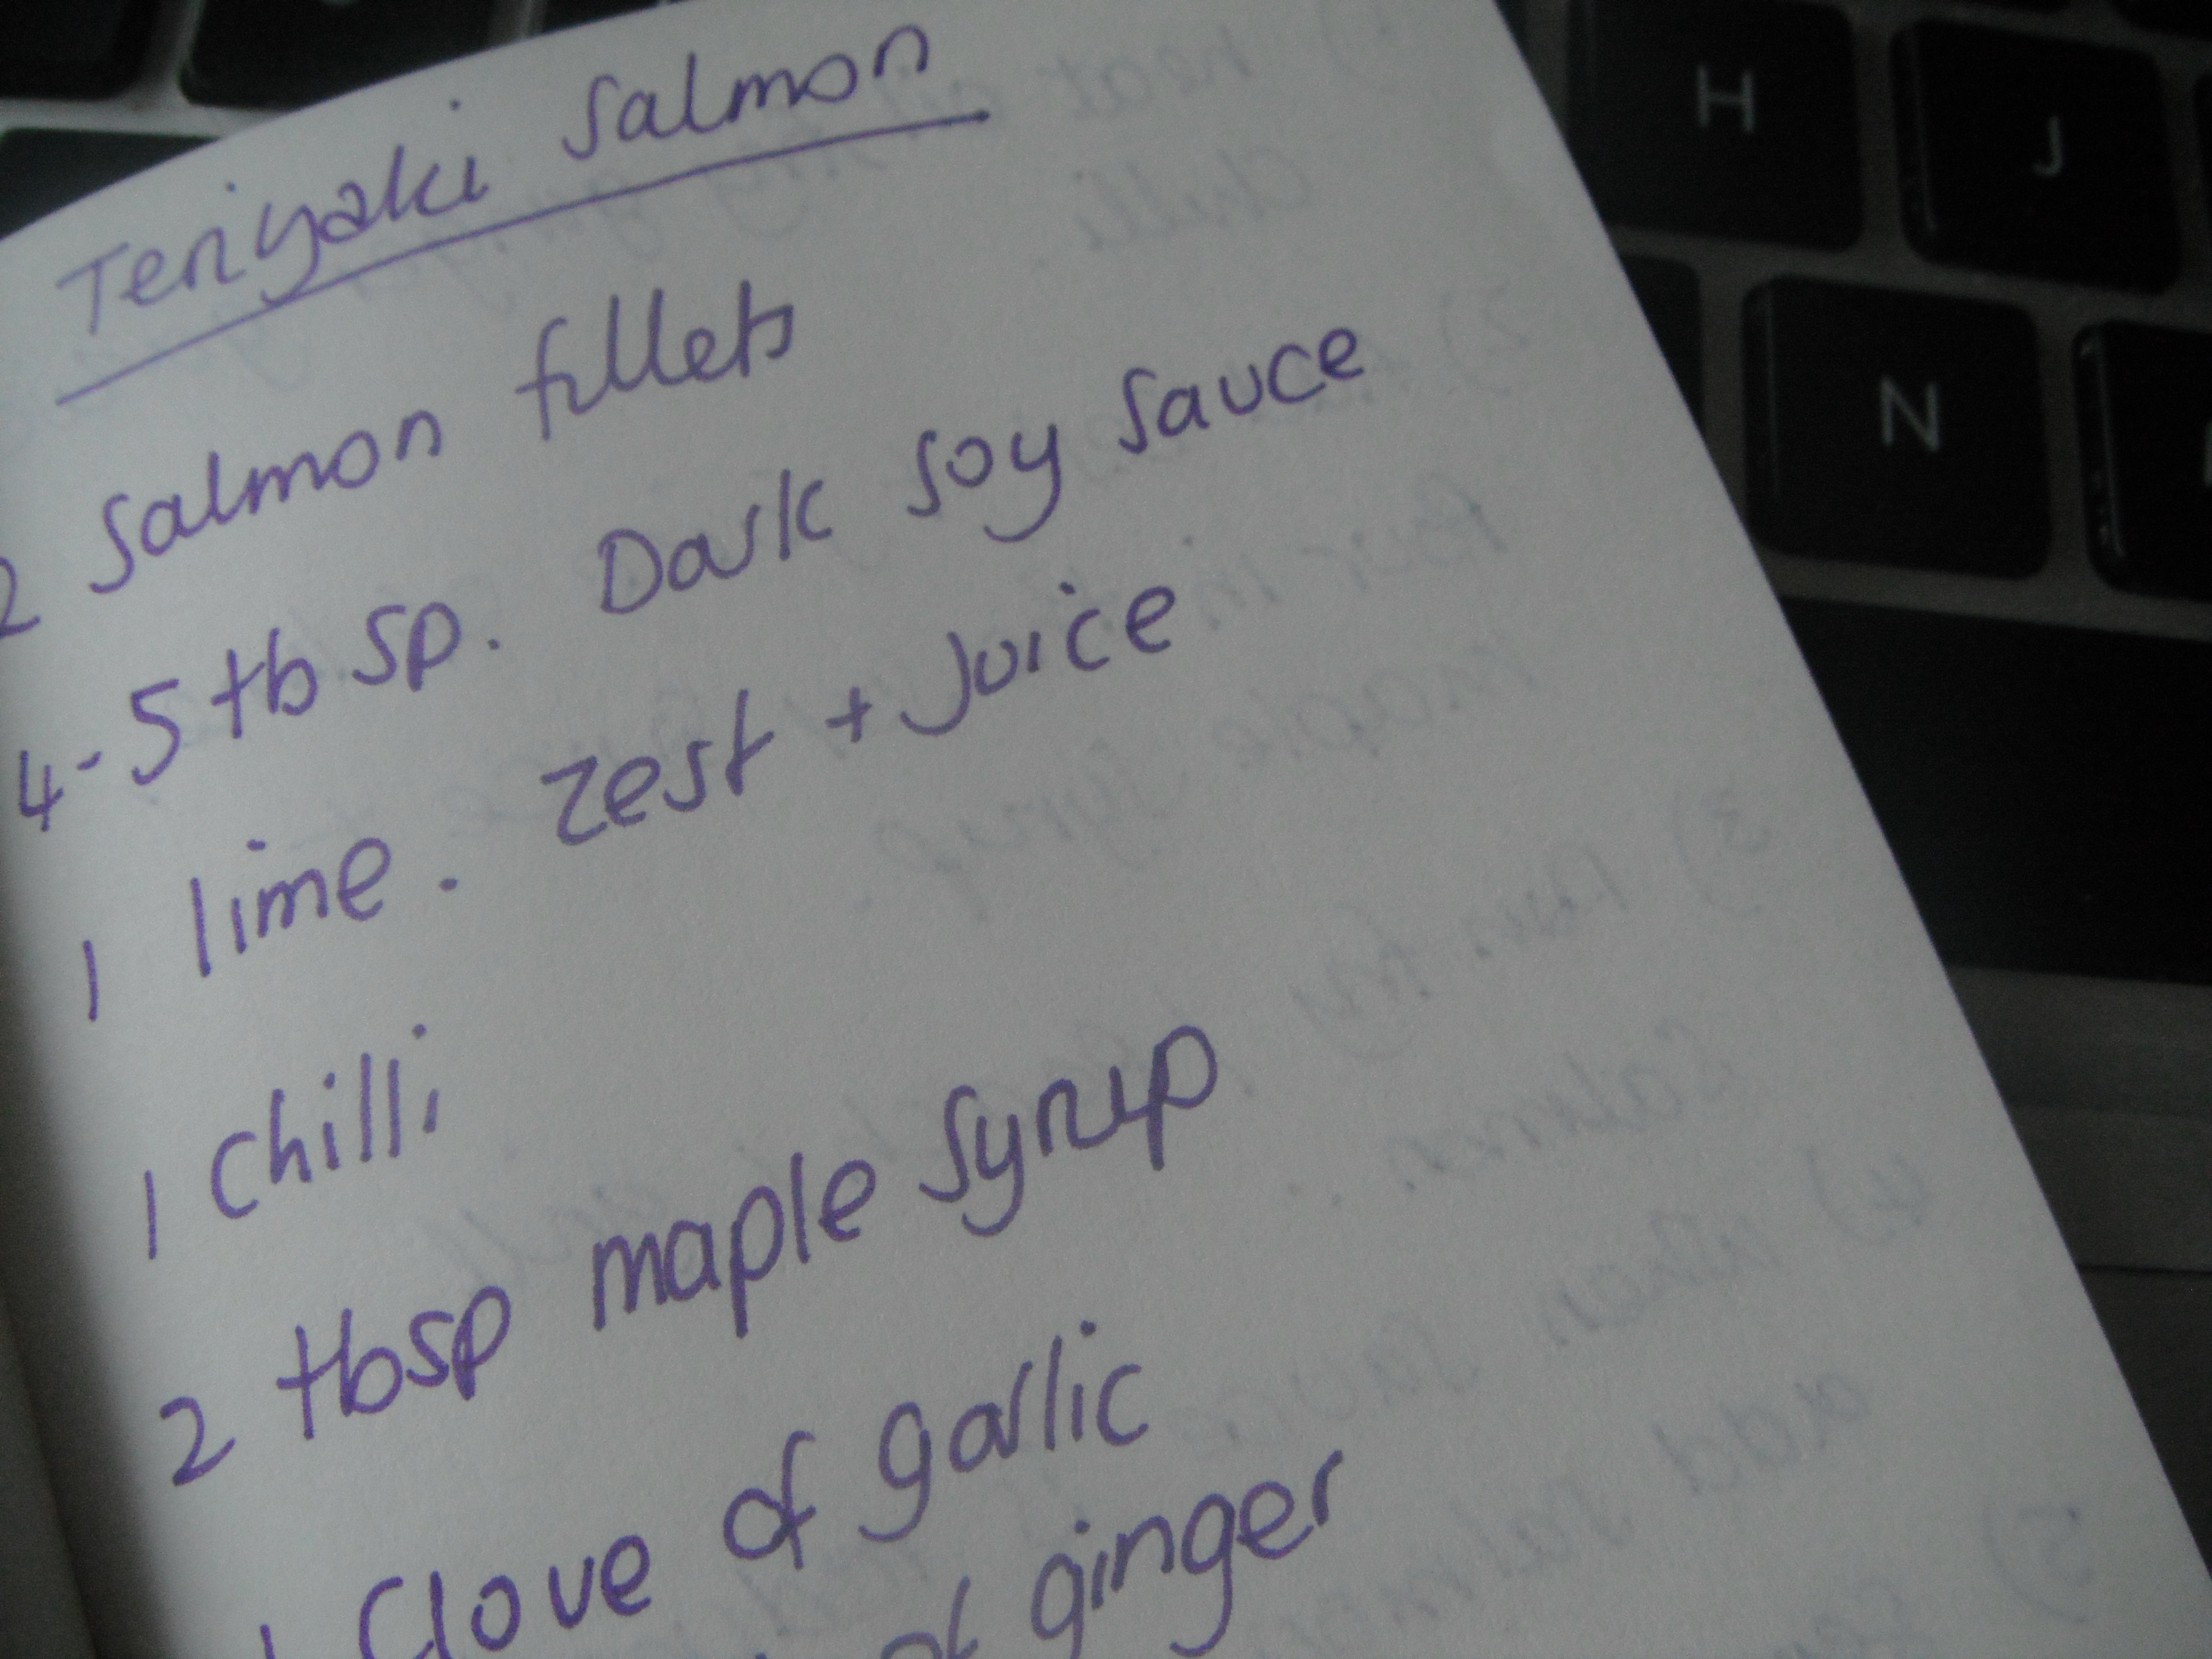 Teriyaki Salmon
2 Salmon fillets
4-5 tbsp. Dark Soy Sauce
1 lime. zest + Juice
1 Chilli
2 tbsp maple Syrup
1 Clove of garlic
of ginger
H
J
N